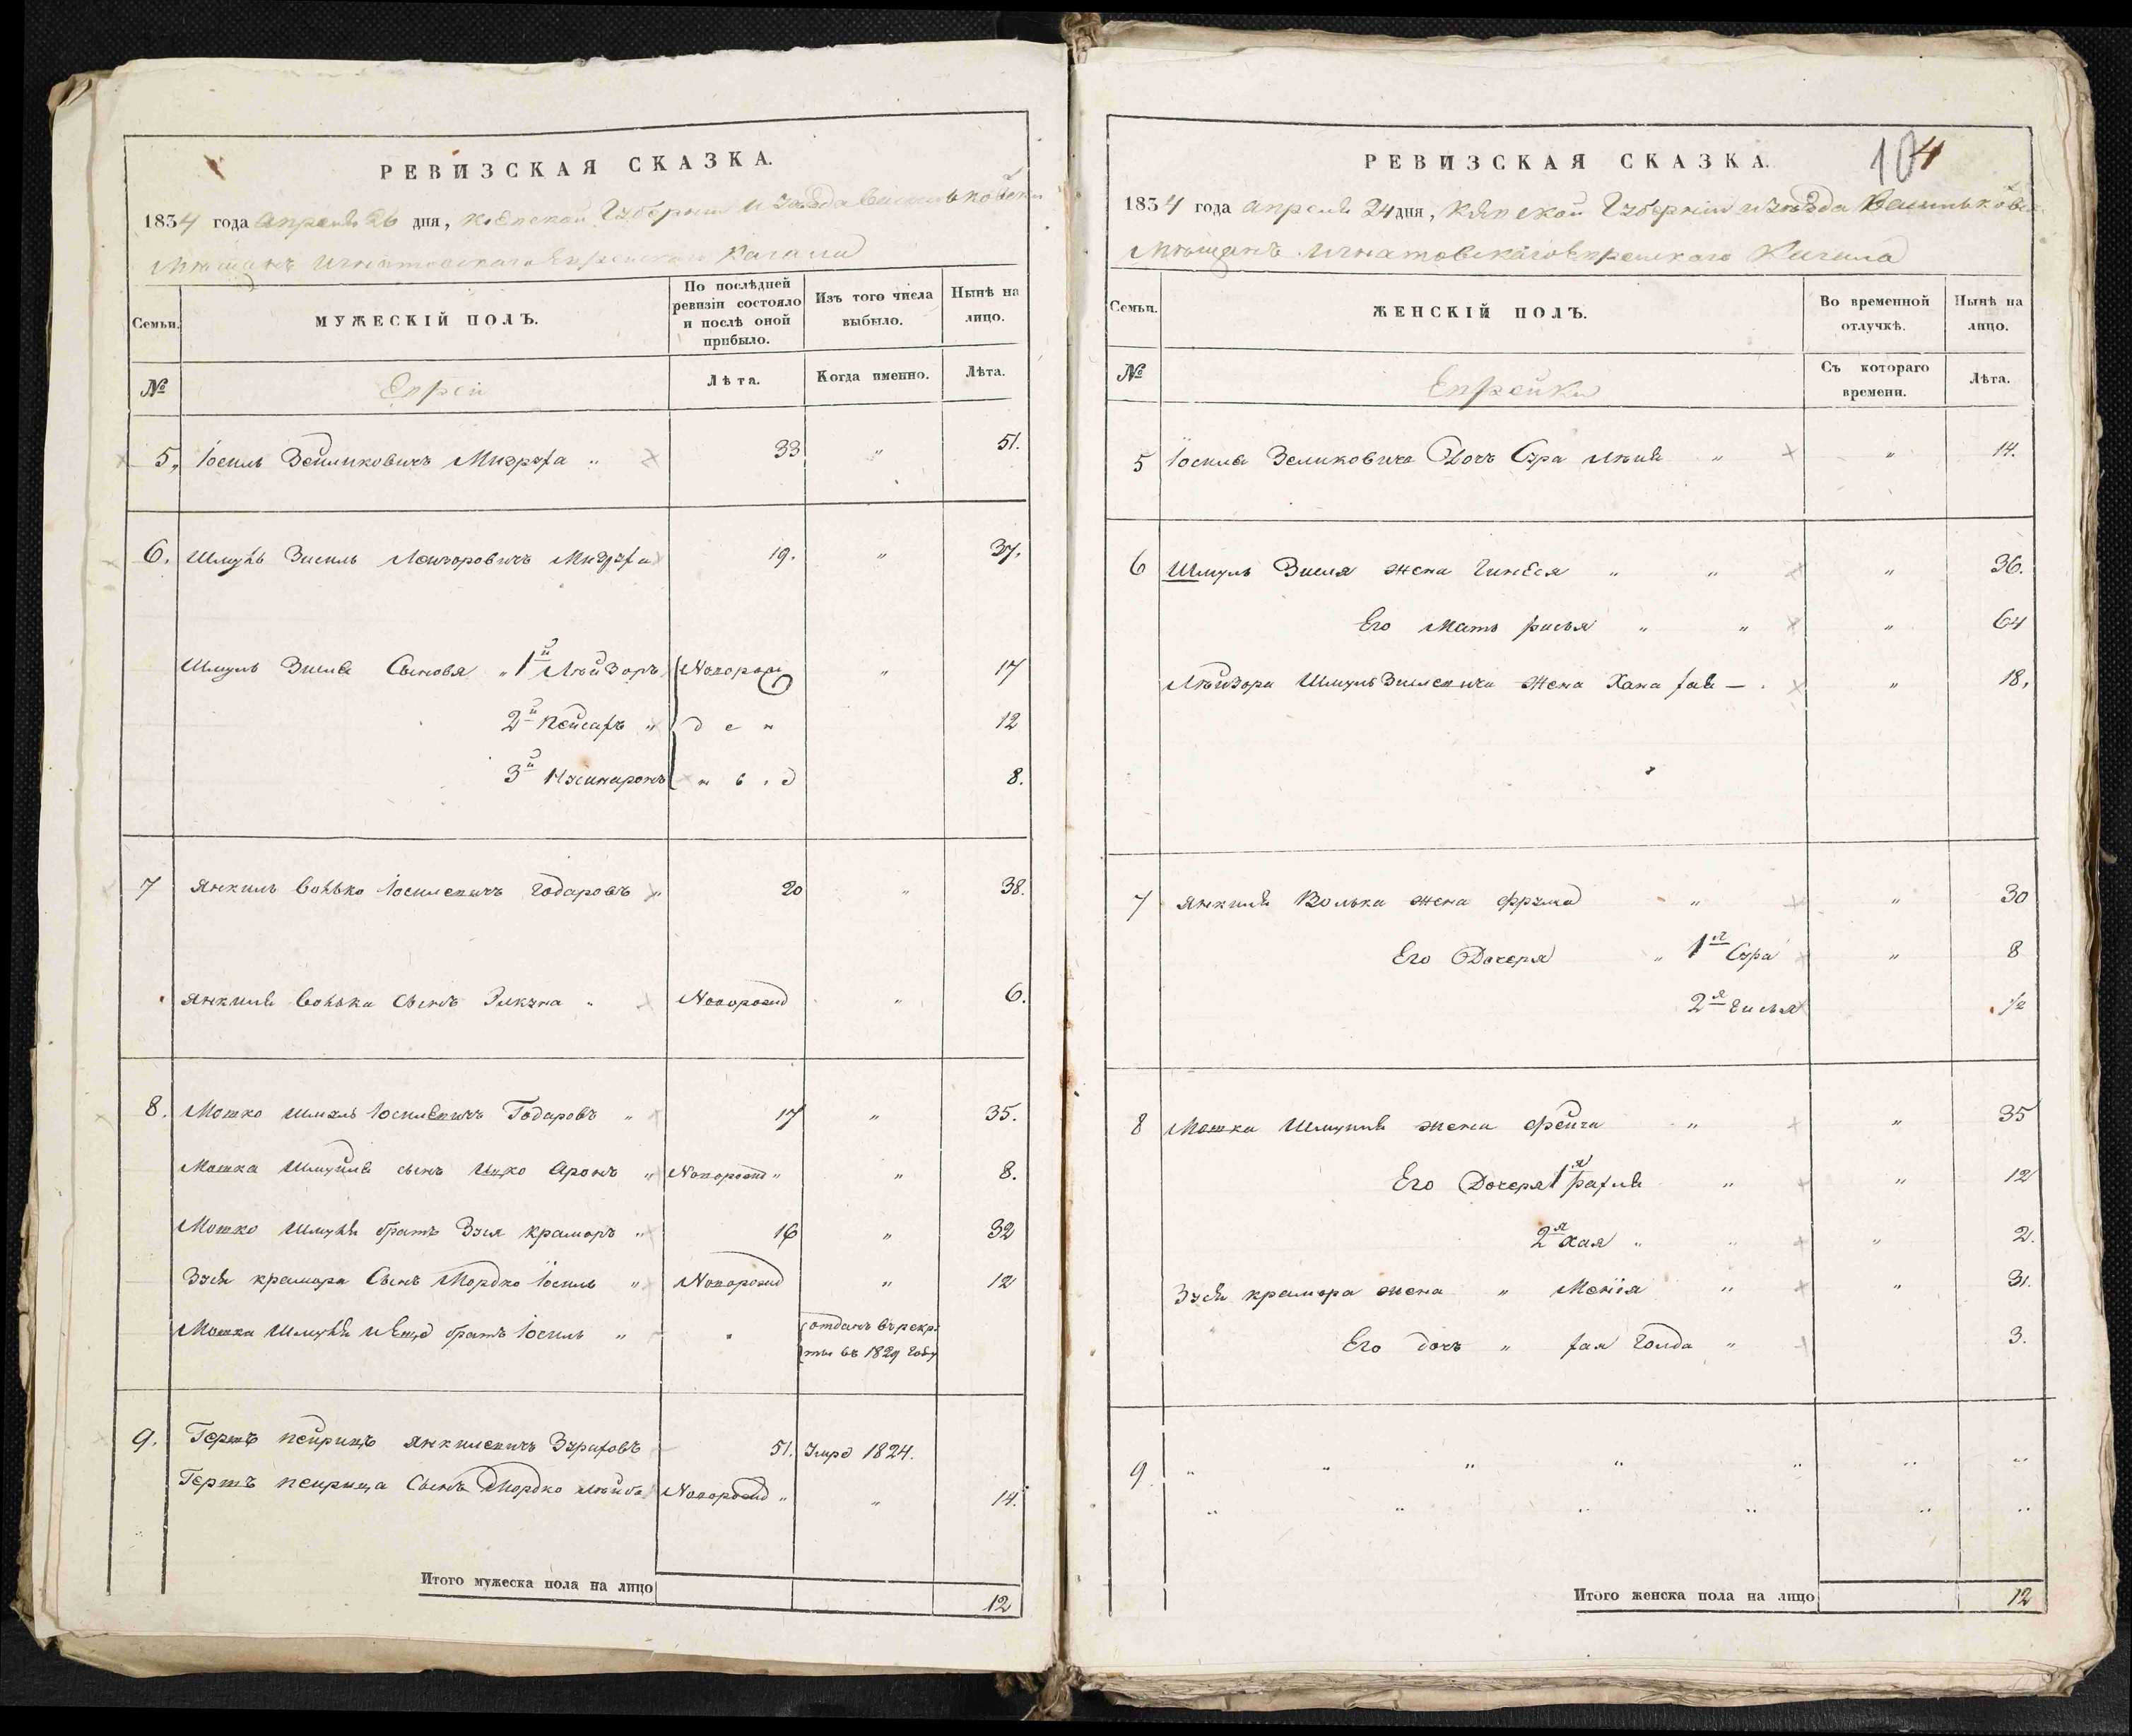 РЕВИЗСКАЯ СКАЗКА.
1834 года апреля 26 дня, Кіевской Губерніи и уѣзда Васильковской
Мѣщанъ Игнатовскаго Еврейскаго Кагала
Семьи.
МУЖЕСКІЙ ПОЛЪ.
По послѣдней ревизіи состояло и послѣ оной прибыло.
Изъ того числа выбыло.
Нынѣ на лицо.
№
Евреи
Лѣта.
Когда именно.
Лѣта.
5. Іосиль Зейликовичъ 33 " 51.
6. Шмуль Зисиль 19. " 37.
Шмуль Зисля Сыновя " 1й Лѣйзоръ Новорож " 17
2й Пейсахъ " д е н 12
3й н ы . д 8.
7 Янкиль Волько Іосилевичъ Годаровъ " 20 " 38.
Янкиля Волька сынъ " Новорожд " 6.
8. Мошко Шмуль Іосилевичъ Годаровъ " 17 " 35.
Мошка Шмуйля сынъ Ицко Аронъ " Новорожд " " 8.
Мошко Шмуля братъ Зуся крамаръ " 16 " 32
Зуся крамара Сынъ Мордко Іосиль " Новорожд " 12
Мошка Шмуля и Ещед братъ Іосиль " " отданъ въ рекр:
ты въ 1829 году
9. Гершъ Пейрицъ Янкилевичъ 51. Умре 1824.
Гершъ Пейрица Сынъ Мордко Лѣйба Новорожд " " 14.
Итого мужеска пола на лицо 12
104
РЕВИЗСКАЯ СКАЗКА.
1834 года апреля 24 дня, Кіевской Губерніи и уѣзда Васильковск
Мѣщанъ Игнатовскаго Еврейскаго Кагала
Семьи.
ЖЕНСКІЙ ПОЛЪ.
Во временной отлучкѣ.
Нынѣ на лицо.
№
Еврейки
Съ котораго времени.
Лѣта.
5 Іосиля Зеликовича Дочь Сура " " 14.
6 Шмуль Зисля жена Гинеся " " " 36.
Его Мать Рися " " " 64
Лѣйзора Шмуль Зислевича Жена Хана Хая " 18.
7 Янкиля Волька жена Фрума " " 30
Его Дочеря " 1я Сура " 8
2я 1/2
8 Мошка Шмуиля жена Фейга " " 35
Его Дочеря 1я Рахля " " 12
2я Хая " " " 2.
Зуся крамара жена " " " 31.
Его дочь " Хая Голда " 3.
9. " " " " " " "
" " " " " "
Итого женска пола на лицо 12